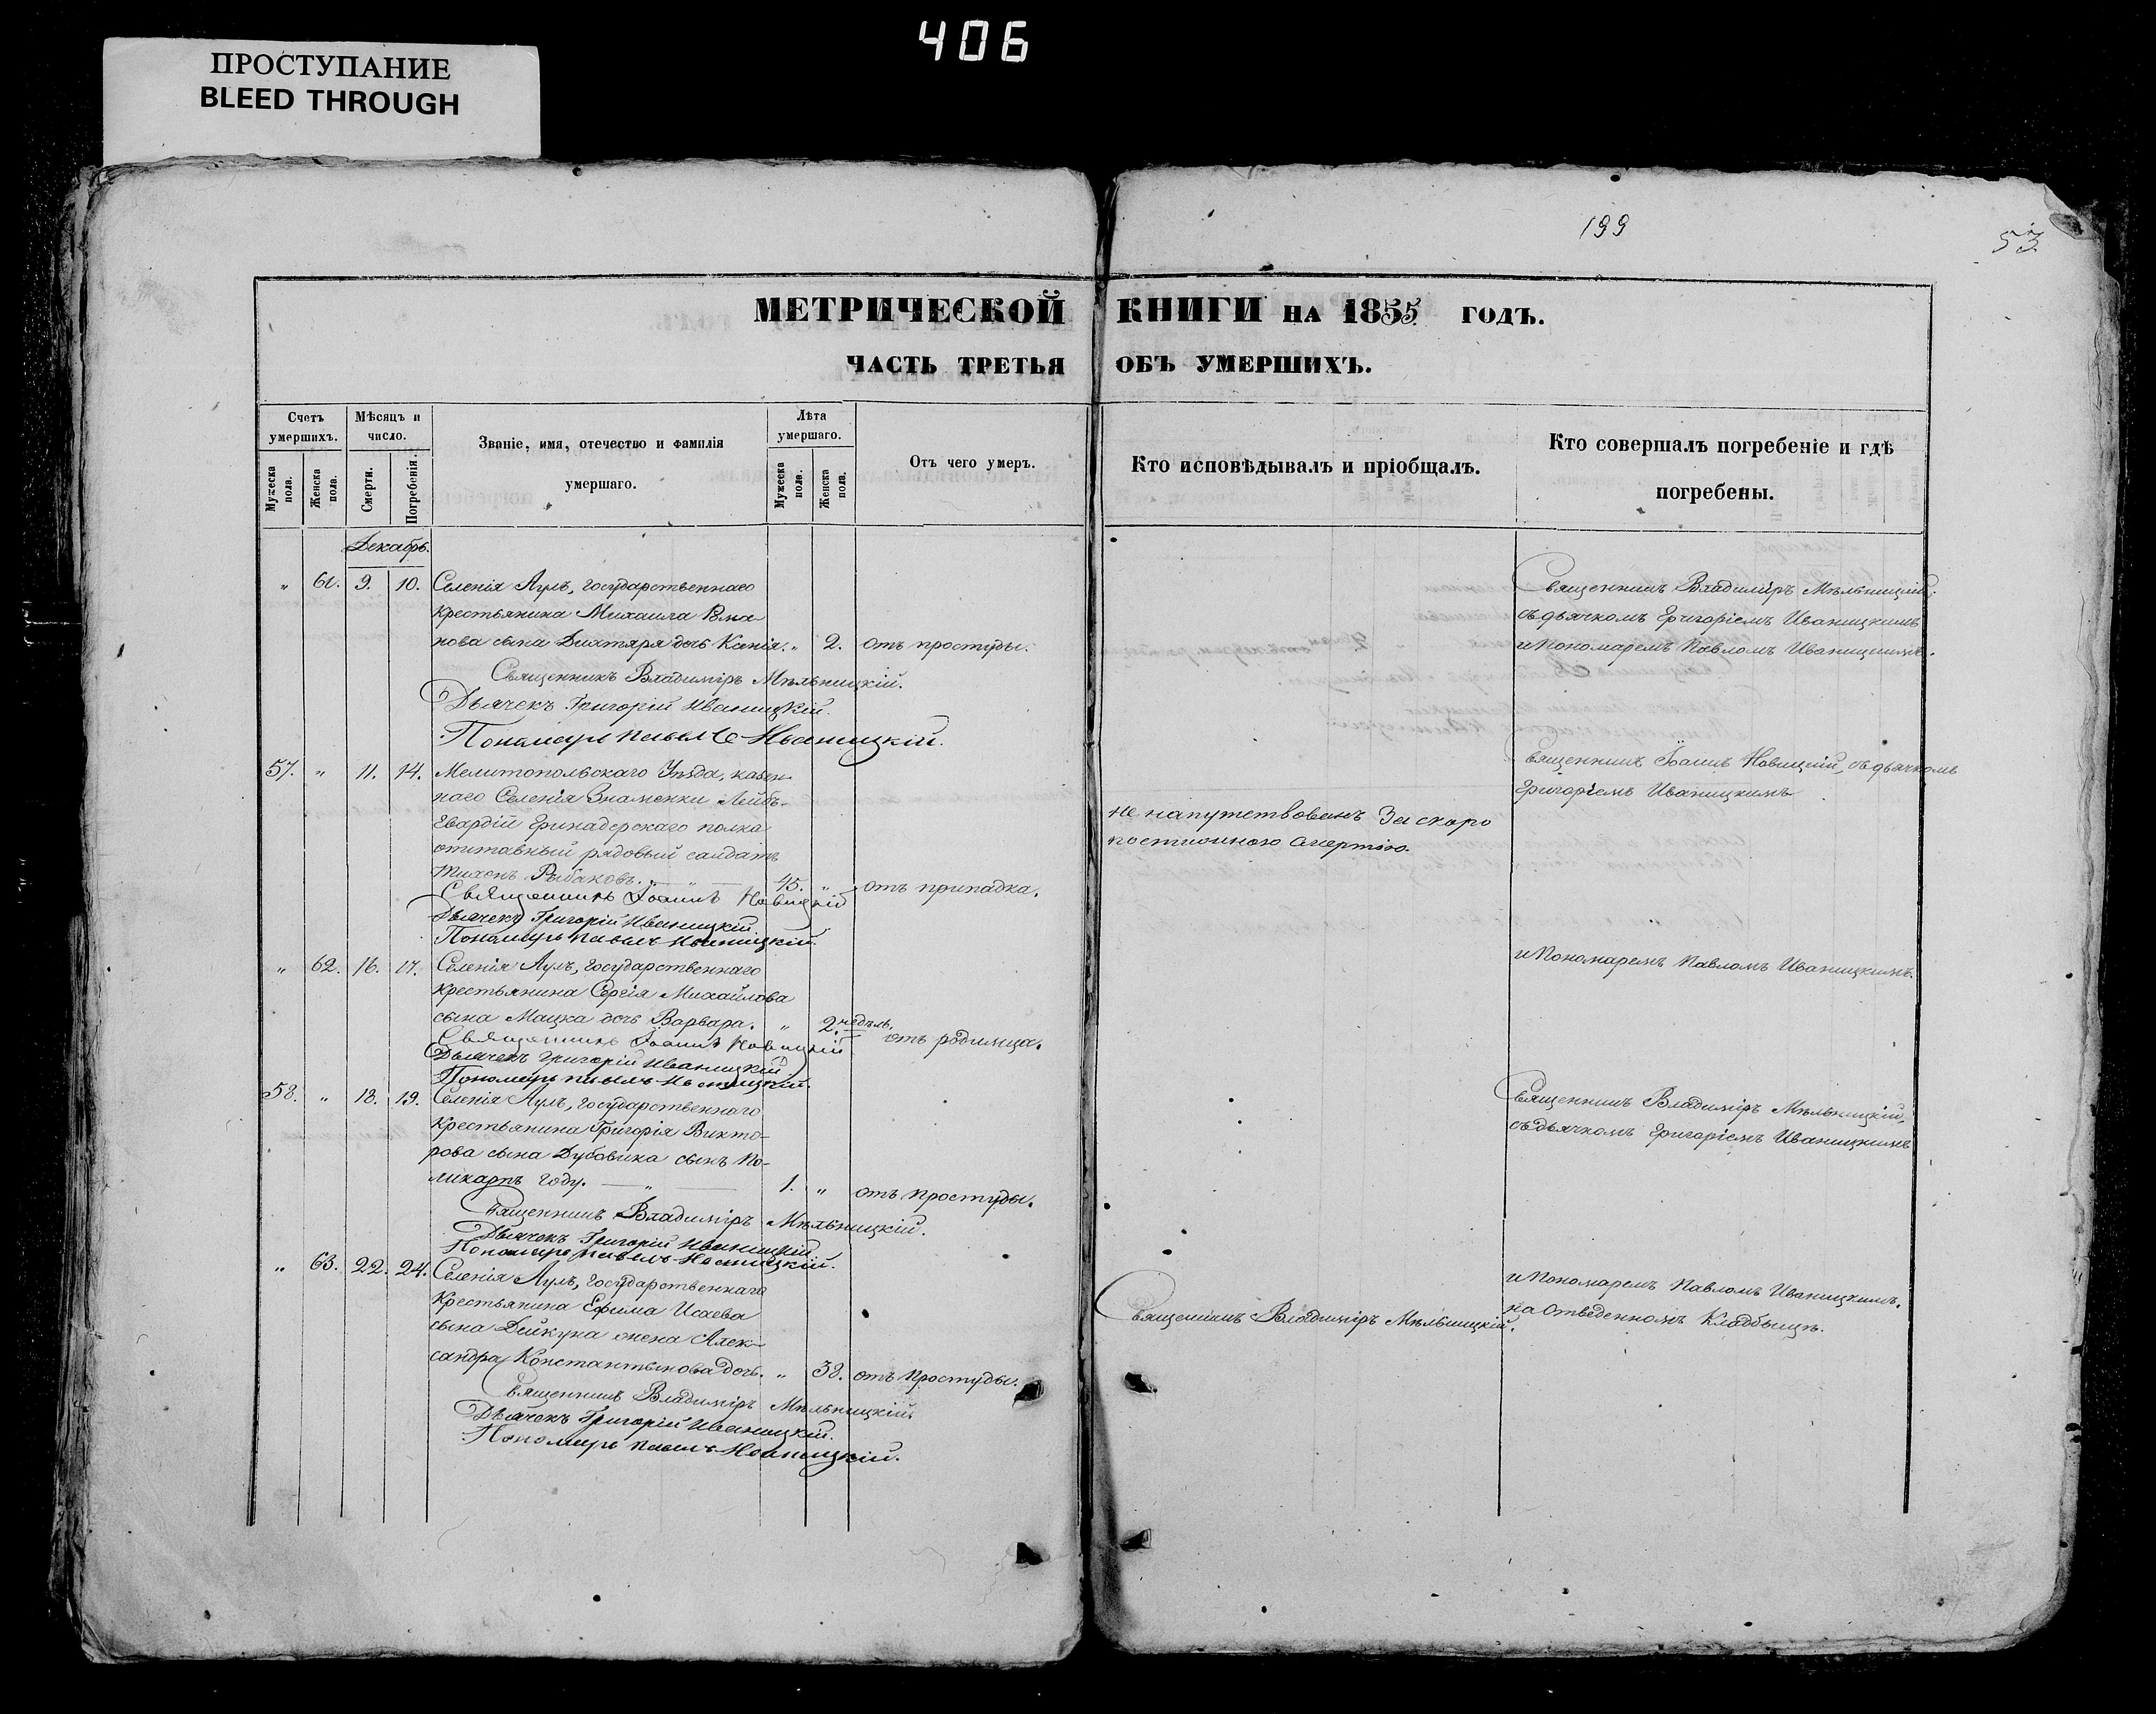 406
ПРОСТУПАНИЕ
BLEED THROUGH
199
53.
МЕТРИЧЕСКОЙ КНИГИ НА 1855 ГОДЪ.
ЧАСТЬ ТРЕТЬЯ ОБЪ УМЕРШИХЪ.
Счетъ умершихъ.
Мужеска пола.
Женска пола.
Мѣсяцъ и число.
Смерти.
Погребенія.
Званіе, имя, отечество и фамилія
умершаго.
Лѣта умершаго.
Мужеска пола.
Женска пола.
Отъ чего умеръ.
Кто исповѣдывалъ и пріобщалъ.
Кто совершалъ погребеніе и гдѣ
погребены.
Декабрь.
" 61. 9. 10. Селенія Аулъ, государственнаго
крестьянина Михаила
нова сына Дихтяря дочь Ксенія. " 2. отъ простуды.
Священникъ Владиміръ Мѣльницкій.
Дьячекъ Григорій Иваницкій.
Пономарь Павелъ Иваницкій.
Священникъ Владиміръ Мѣльницкій
съ дьячкомъ Григоріемъ Иваницкимъ
и Пономаремъ Павломъ Иваницкимъ.
57. " 11. 14. Мелитопольскаго Уѣзда, казен-
наго Селенія Знаменки Лейбъ-
Гвардій Гринадерскаго полка
отставный рядовый салдатъ
Тихонъ Рыбаковъ. " 45. " отъ припадка.
Священникъ Іоаннъ Новицкій
Дьячекъ Григорій Иваницкій.
Пономарь Павелъ Иваницкій.
не напутствованъ За скоро
постижною смертію.
Священникъ Іоаннъ Новицкій, съ дьячкомъ
Григоріемъ Иваницкимъ
" 62. 16. 17. Селенія Аулъ, государственнаго
крестьянина Сергія Михайлова
сына Мацка дочь Варвара. " 2. недѣль. отъ родимца.
Священникъ Іоаннъ Новицкій
Дьячекъ Григорій Иваницкій
Пономарь Павелъ Иваницкій.
и Пономаремъ Павломъ Иваницкимъ.
58. " 18. 19. Селенія Аулъ, государственнаго
крестьянина Григорія Викто-
рова сына Дубовика сынъ По-
ликарпъ году. " 1. " отъ простуды.
Священникъ Владиміръ Мѣльницкій.
Дьячекъ Григорій Иваницкій
Пономарь Павелъ Иваницкій.
Священникъ Владиміръ Мѣльницкій,
съ дьячкомъ Григоріемъ Иваницкимъ
" 63. 22. 24. Селенія Аулъ, государственнаго
Крестьянина Ефима Исаева
сына Дейкуна жена Алек-
сандра Константынова дочь. " 38. отъ простуды.
Священникъ Владиміръ Мѣльницкій
Дьячекъ Григорій Иваницкій.
Пономарь Павелъ Иваницкій.
Священникъ Владиміръ Мѣльницкій.
и Пономаремъ Павломъ Иваницкимъ.
на Отведенномъ Кладбыщѣ.